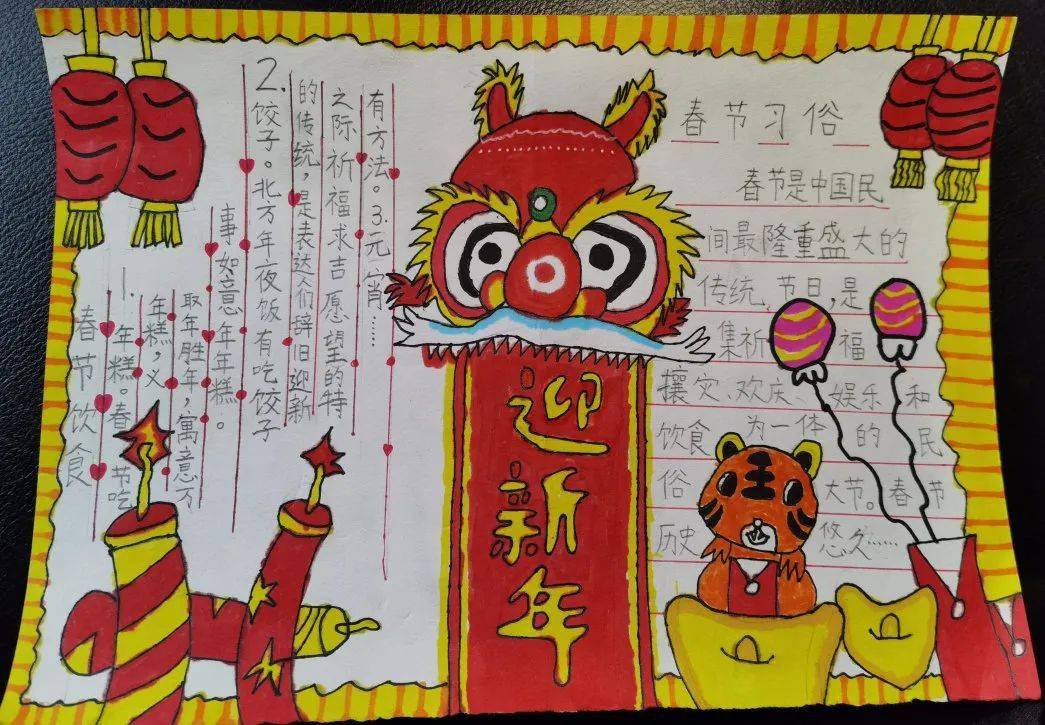 春节饮食
1.年糕。春节吃
年糕,义
取年胜年,寓意万
事如意年年糕。
2.饺子。北方年夜饭有吃饺子
的传统,是表达人们辞旧迎新
之际祈福求吉愿望的特
有方法。3.元宵……
迎新年
春节习俗
春节是中国民
间最隆重盛大的
传统节日,是
集祈福
攘灾、欢庆、娱乐和
饮食为一体的民
俗大节。春节
历史悠久……
王